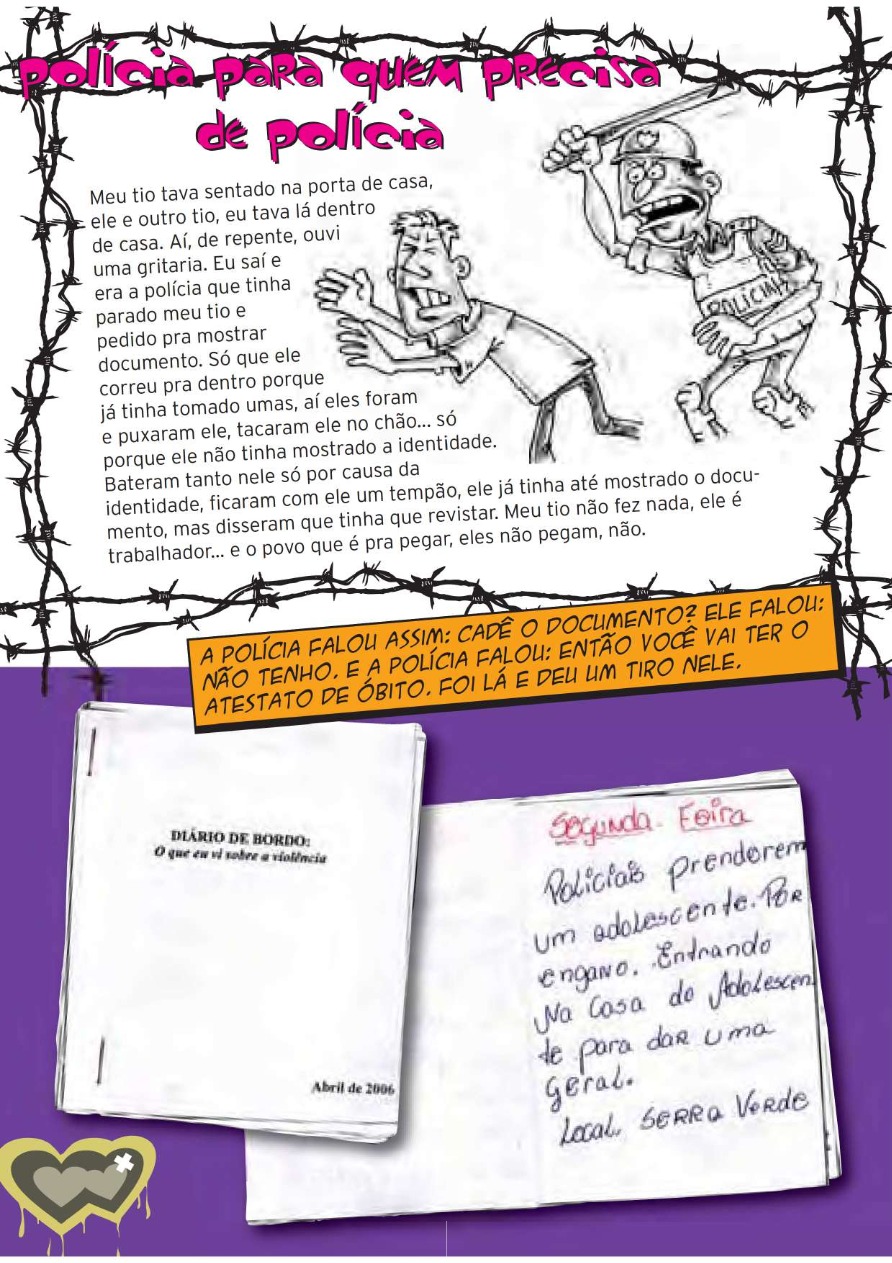 Polícia para quem precisa
de polícia
Meu tio tava sentado na porta de casa,
ele e outro tio, eu tava lá dentro
de casa. Aí, de repente, ouvi
uma gritaria. Eu saí e
era a polícia que tinha
parado meu tio e
pedido pra mostrar
documento. Só que ele
correu pra dentro porque
já tinha tomado umas, aí eles foram
e puxaram ele, tacaram ele no chão... só
porque ele não tinha mostrado a identidade.
Bateram tanto nele só por causa da
identidade, ficaram com ele um tempão, ele já tinha até mostrado o docu-
mento, mas disseram que tinha que revistar. Meu tio não fez nada, ele é
trabalhador... e o povo que é pra pegar, eles não pegam, não.
POLICIA
A POLÍCIA FALOU ASSIM: CADÊ O DOCUMENTO? ELE FALOU:
NÃO TENHO. E A POLÍCIA FALOU: ENTÃO VOCÊ VAI TER O
ATESTATO DE ÓBITO. FOI LÁ E DEU UM TIRO NELE.
DIÁRIO DE BORDO:
O que eu vi sobre a violência
Abril de 2006
Segunda-Feira
Policiais prenderem
um adolescente. Por
engano. Entrando
Na Casa do Adolescen
te para dar uma
Geral.
Local. SERRA VERDE